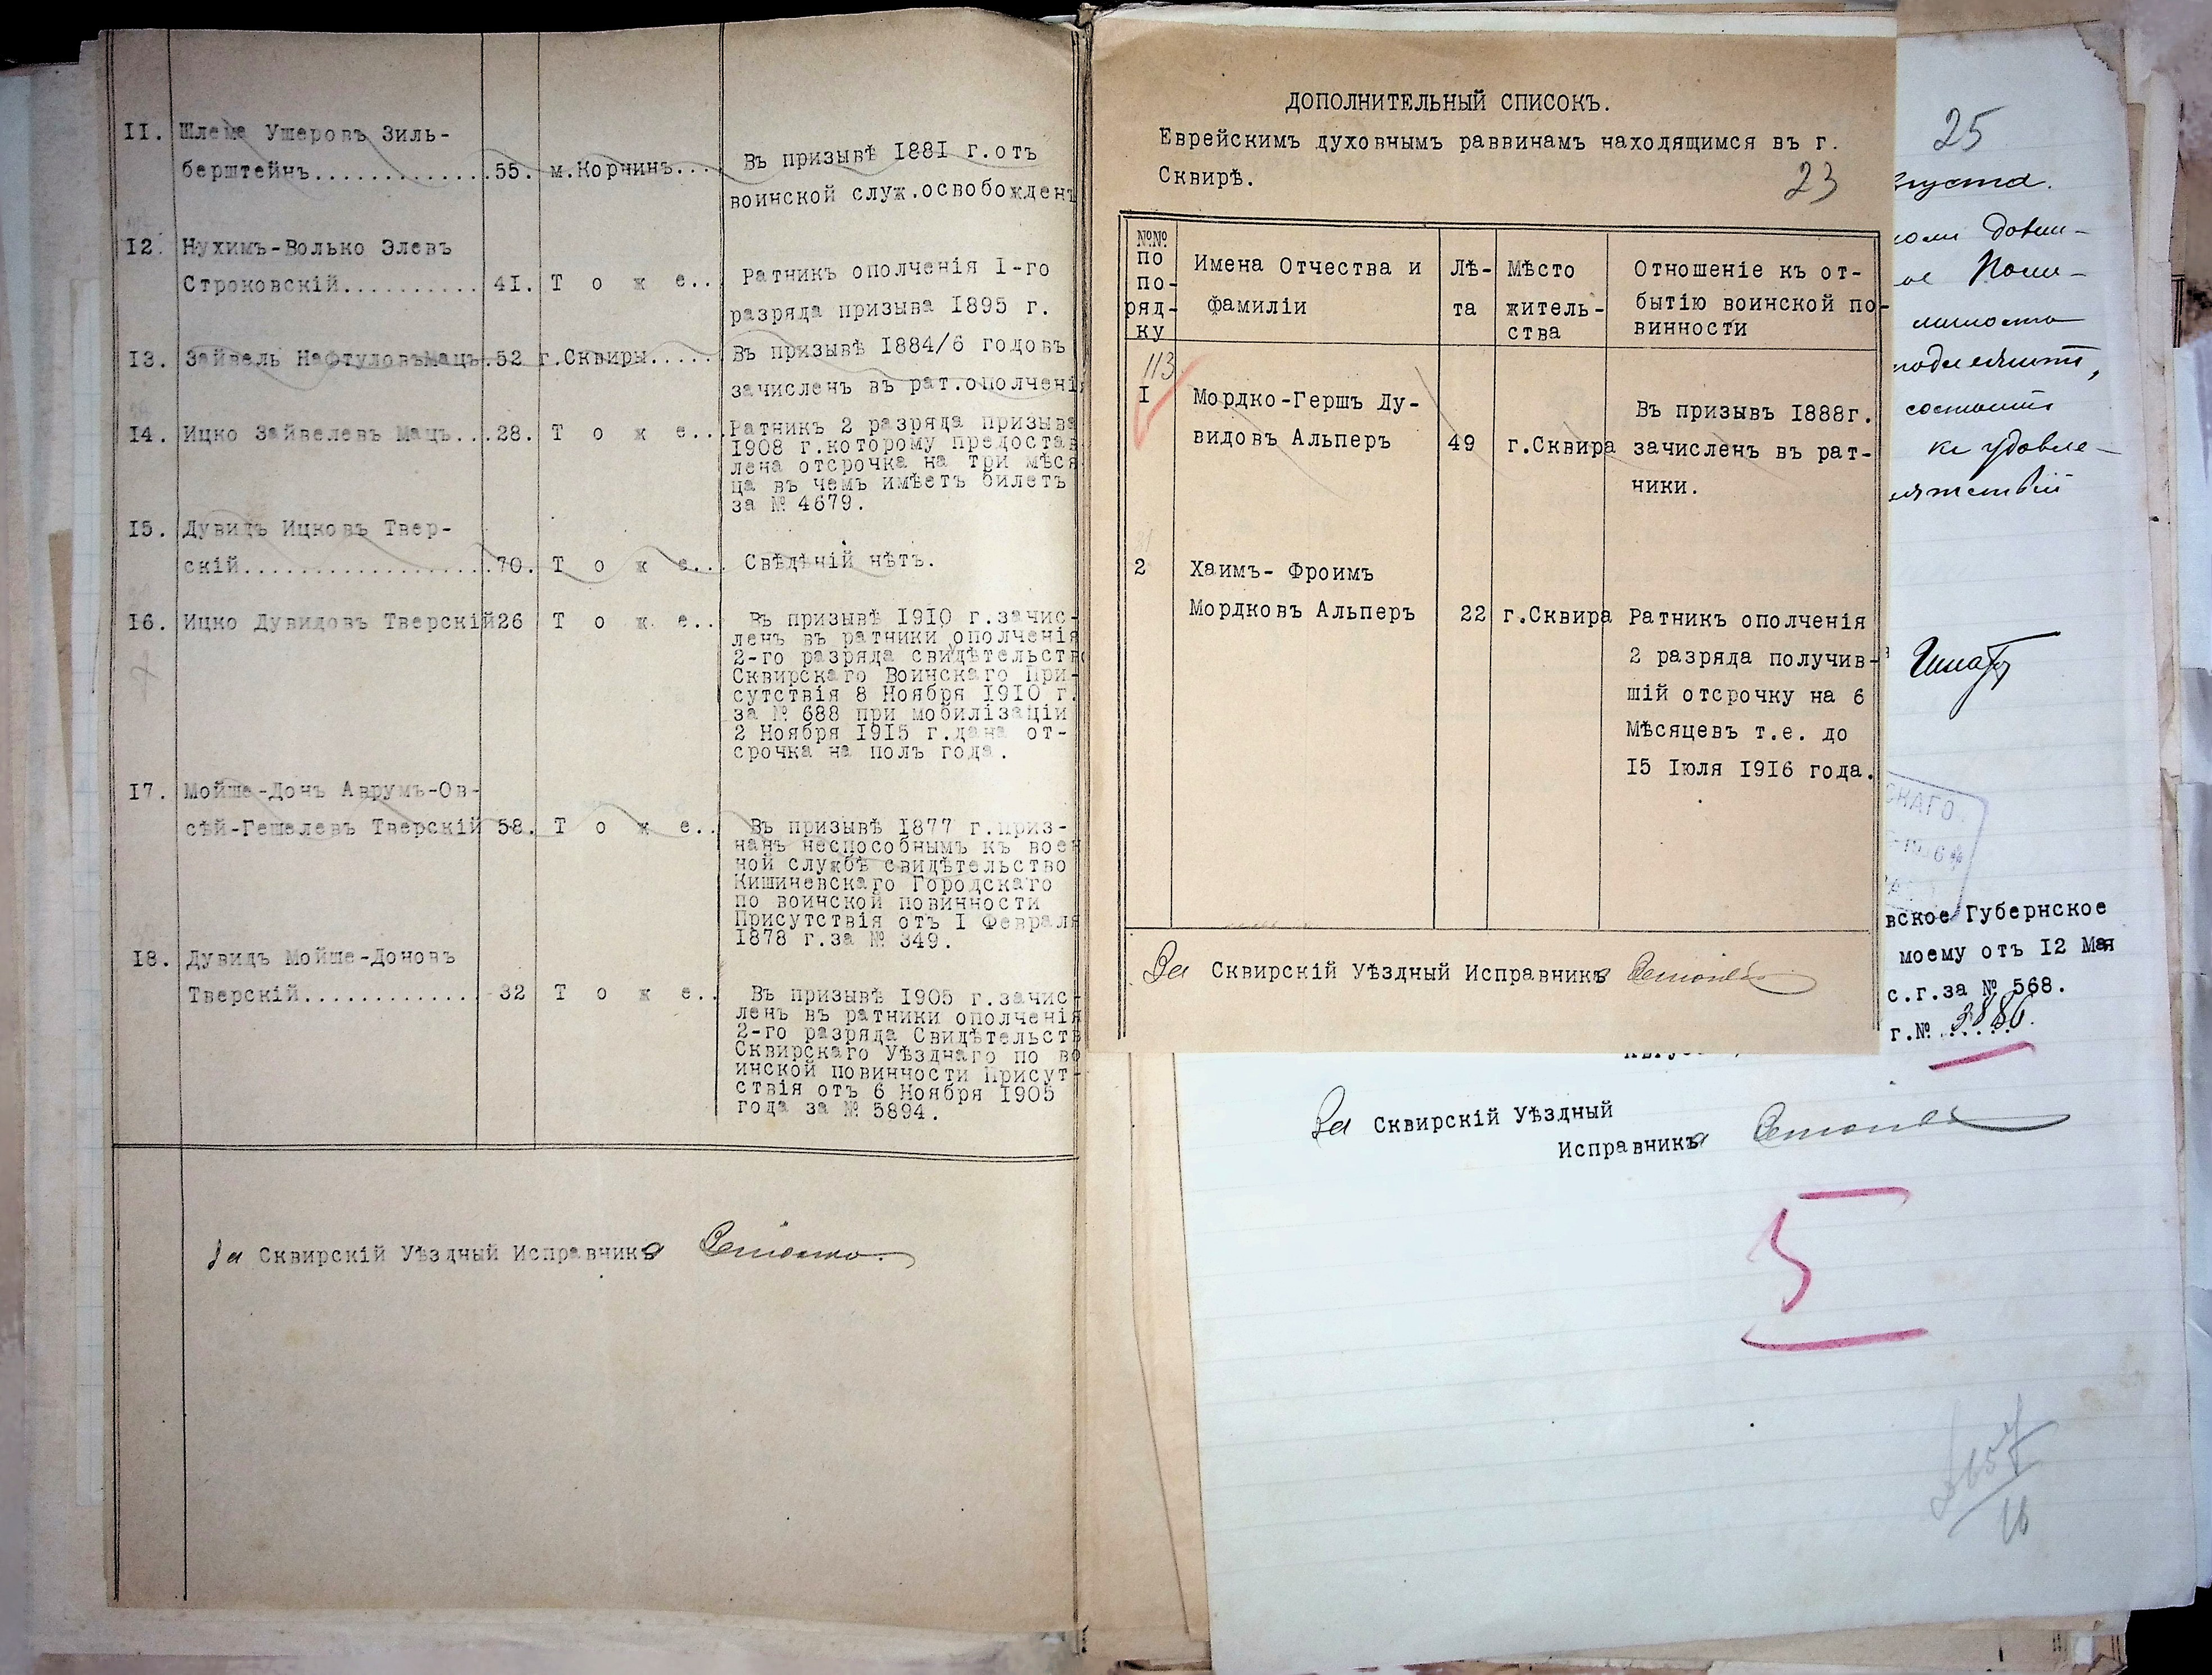 11. Шлема Ушеровъ Зиль-
берштейнъ............. 55. м.Корнинъ... Въ призывѣ 1881 г.отъ
воинской служ.освобожденъ
12. Нухимъ-Волько Элевъ
Строковскій.......... 41. Т о ж е.. Ратникъ ополченія I-го
разряда призыва 1895 г.
13. Зайвель НафтуловъМацъ. 52 г.Сквиры..... Въ призывѣ 1884/6 годовъ
зачисленъ въ рат.ополченія
14. Ицко Зайвелевъ Мацъ... 28. Т о ж е... Ратникъ 2 разряда призыва
1908 г.которому предостав
лена отсрочка на три мѣся
ца въ чемъ имѣетъ билетъ
за № 4679.
15. Дувидъ Ицковъ Твер-
скій................... 70. Т о ж е... Свѣдѣній нѣтъ.
16. Ицко Дувидовъ Тверскій 26 Т о ж е.. Въ призывѣ 1910 г.зачис-
ленъ въ ратники ополченія
2-го разряда свидѣтельств
Сквирскаго Воинскаго При-
сутствія 8 Ноября 1910 г.
за № 688 при мобилізаціи
2 Ноября 1915 г.дана от-
срочка на полъ года.
17. Мойше-Донъ Аврумъ-Ов-
сѣй-Гешелевъ Тверскій 58. Т о ж е.. Въ призывѣ 1877 г.приз-
нанъ неспособнымъ къ воен
ной службѣ свидѣтельство
Кишиневскаго Городскаго
по воинской повинности
Присутствія отъ I Февраля
1878 г.за № 349.
18. Дувидъ Мойше-Доновъ
Тверскій............. 32 Т о ж е.. Въ призывѣ 1905 г.зачис-
ленъ въ ратники ополченія
2-го разряда Свидѣтельств
Сквирскаго Уѣзднаго по во
инской повинности Присут-
ствія отъ 6 Ноября 1905
года за № 5894.
За Сквирскій Уѣздный Исправника
ДОПОЛНИТЕЛЬНЫЙ СПИСОКЪ.
Еврейскимъ духовнымъ раввинамъ находящимся въ г.
Сквирѣ.
23
№№ по по- ряд- ку
Имена Отчества и фамиліи
Лѣ- та
Мѣсто житель- ства
Отношеніе къ от-
бытію воинской по-
винности
113
I Мордко-Гершъ Ду-
видовъ Альперъ 49 г.Сквира Въ призывъ 1888г.
зачисленъ въ рат-
ники.
2 Хаимъ- Фроимъ
Мордковъ Альперъ 22 г.Сквира Ратникъ ополченія
2 разряда получив-
шій отсрочку на 6
Мѣсяцевъ т.е. до
15 Іюля 1916 года.
За Сквирскій Уѣздный Исправника
25
вское Губернское
моему отъ 12 Мая
с.г.за № 568.
г.№ 3886.
За Сквирскій Уѣздный
Исправника
5